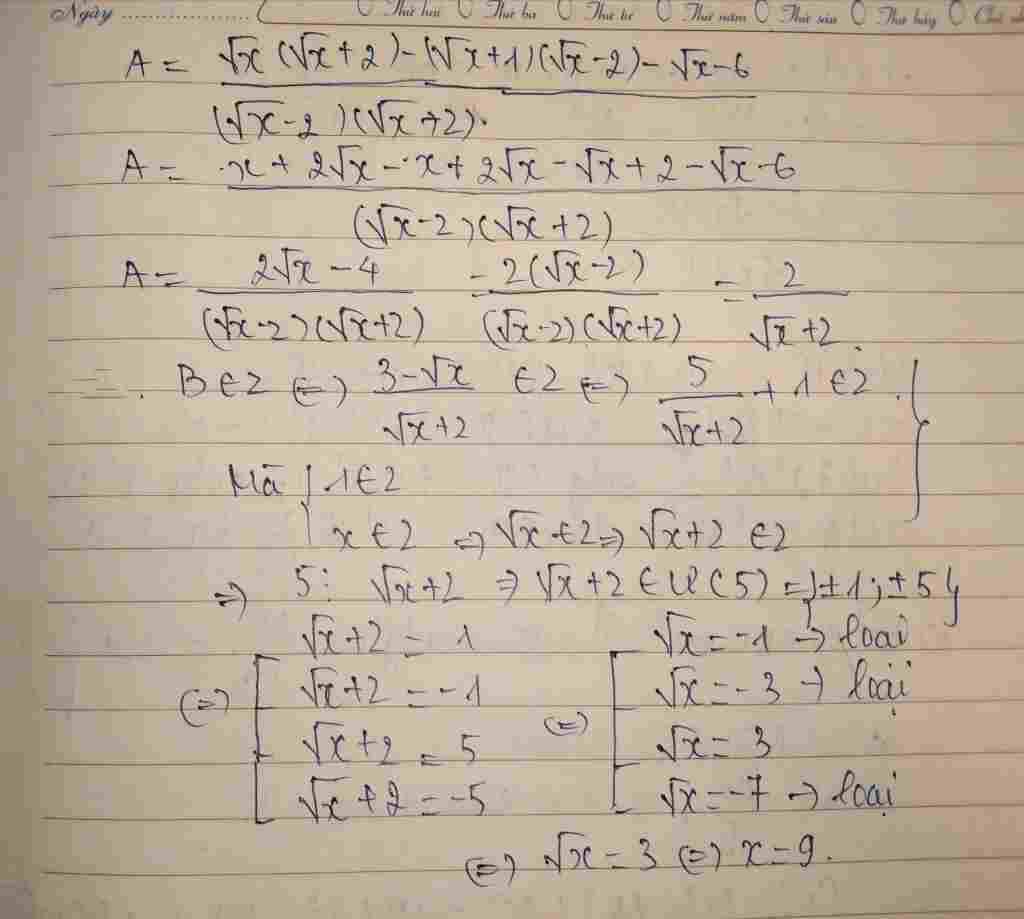 Ngày ........................ Thứ hai Thứ ba Thứ tư Thứ năm Thứ sáu Thứ bảy
A = √x (√x + 2) - (√x + 1)(√x - 2) - √x - 6
(√x - 2)(√x + 2).
A = x + 2√x - x + 2√x - √x + 2 - √x - 6
(√x - 2)(√x + 2)
A = 2√x - 4 = 2(√x - 2) = 2
(√x - 2)(√x + 2) (√x - 2)(√x + 2) √x + 2.
B ∈ Z ⇔ 3 - √x ∈ Z ⇔ 5 + 1 ∈ Z.
√x + 2 √x + 2
Mà { 1 ∈ Z
x ∈ Z ⇒ √x ∈ Z ⇒ √x + 2 ∈ Z
⇒ 5 ⋮ √x + 2 ⇒ √x + 2 ∈ Ư(5) = {±1; ±5}
√x + 2 = 1 √x = -1 → loại
⇔ √x + 2 = -1 ⇔ √x = -3 → loại
√x + 2 = 5 √x = 3
√x + 2 = -5 √x = -7 → loại
⇔ √x = 3 ⇔ x = 9.